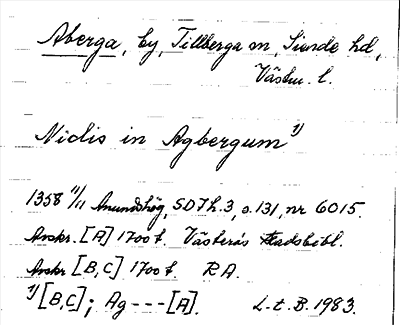 Aberga, by, Tillberga sn, Siende hd,
Västm. l.
Niclis in Agbergum 1)
1358 11/11 Anundshög, SD 7 h. 3, s. 131, nr 6015.
Avskr. [A] 1700 t. Västerås stadsbibl.
Avskr [B, C] 1700 t. RA.
1) [B, C]; Ag --- [A]. L. t. B. 1983.